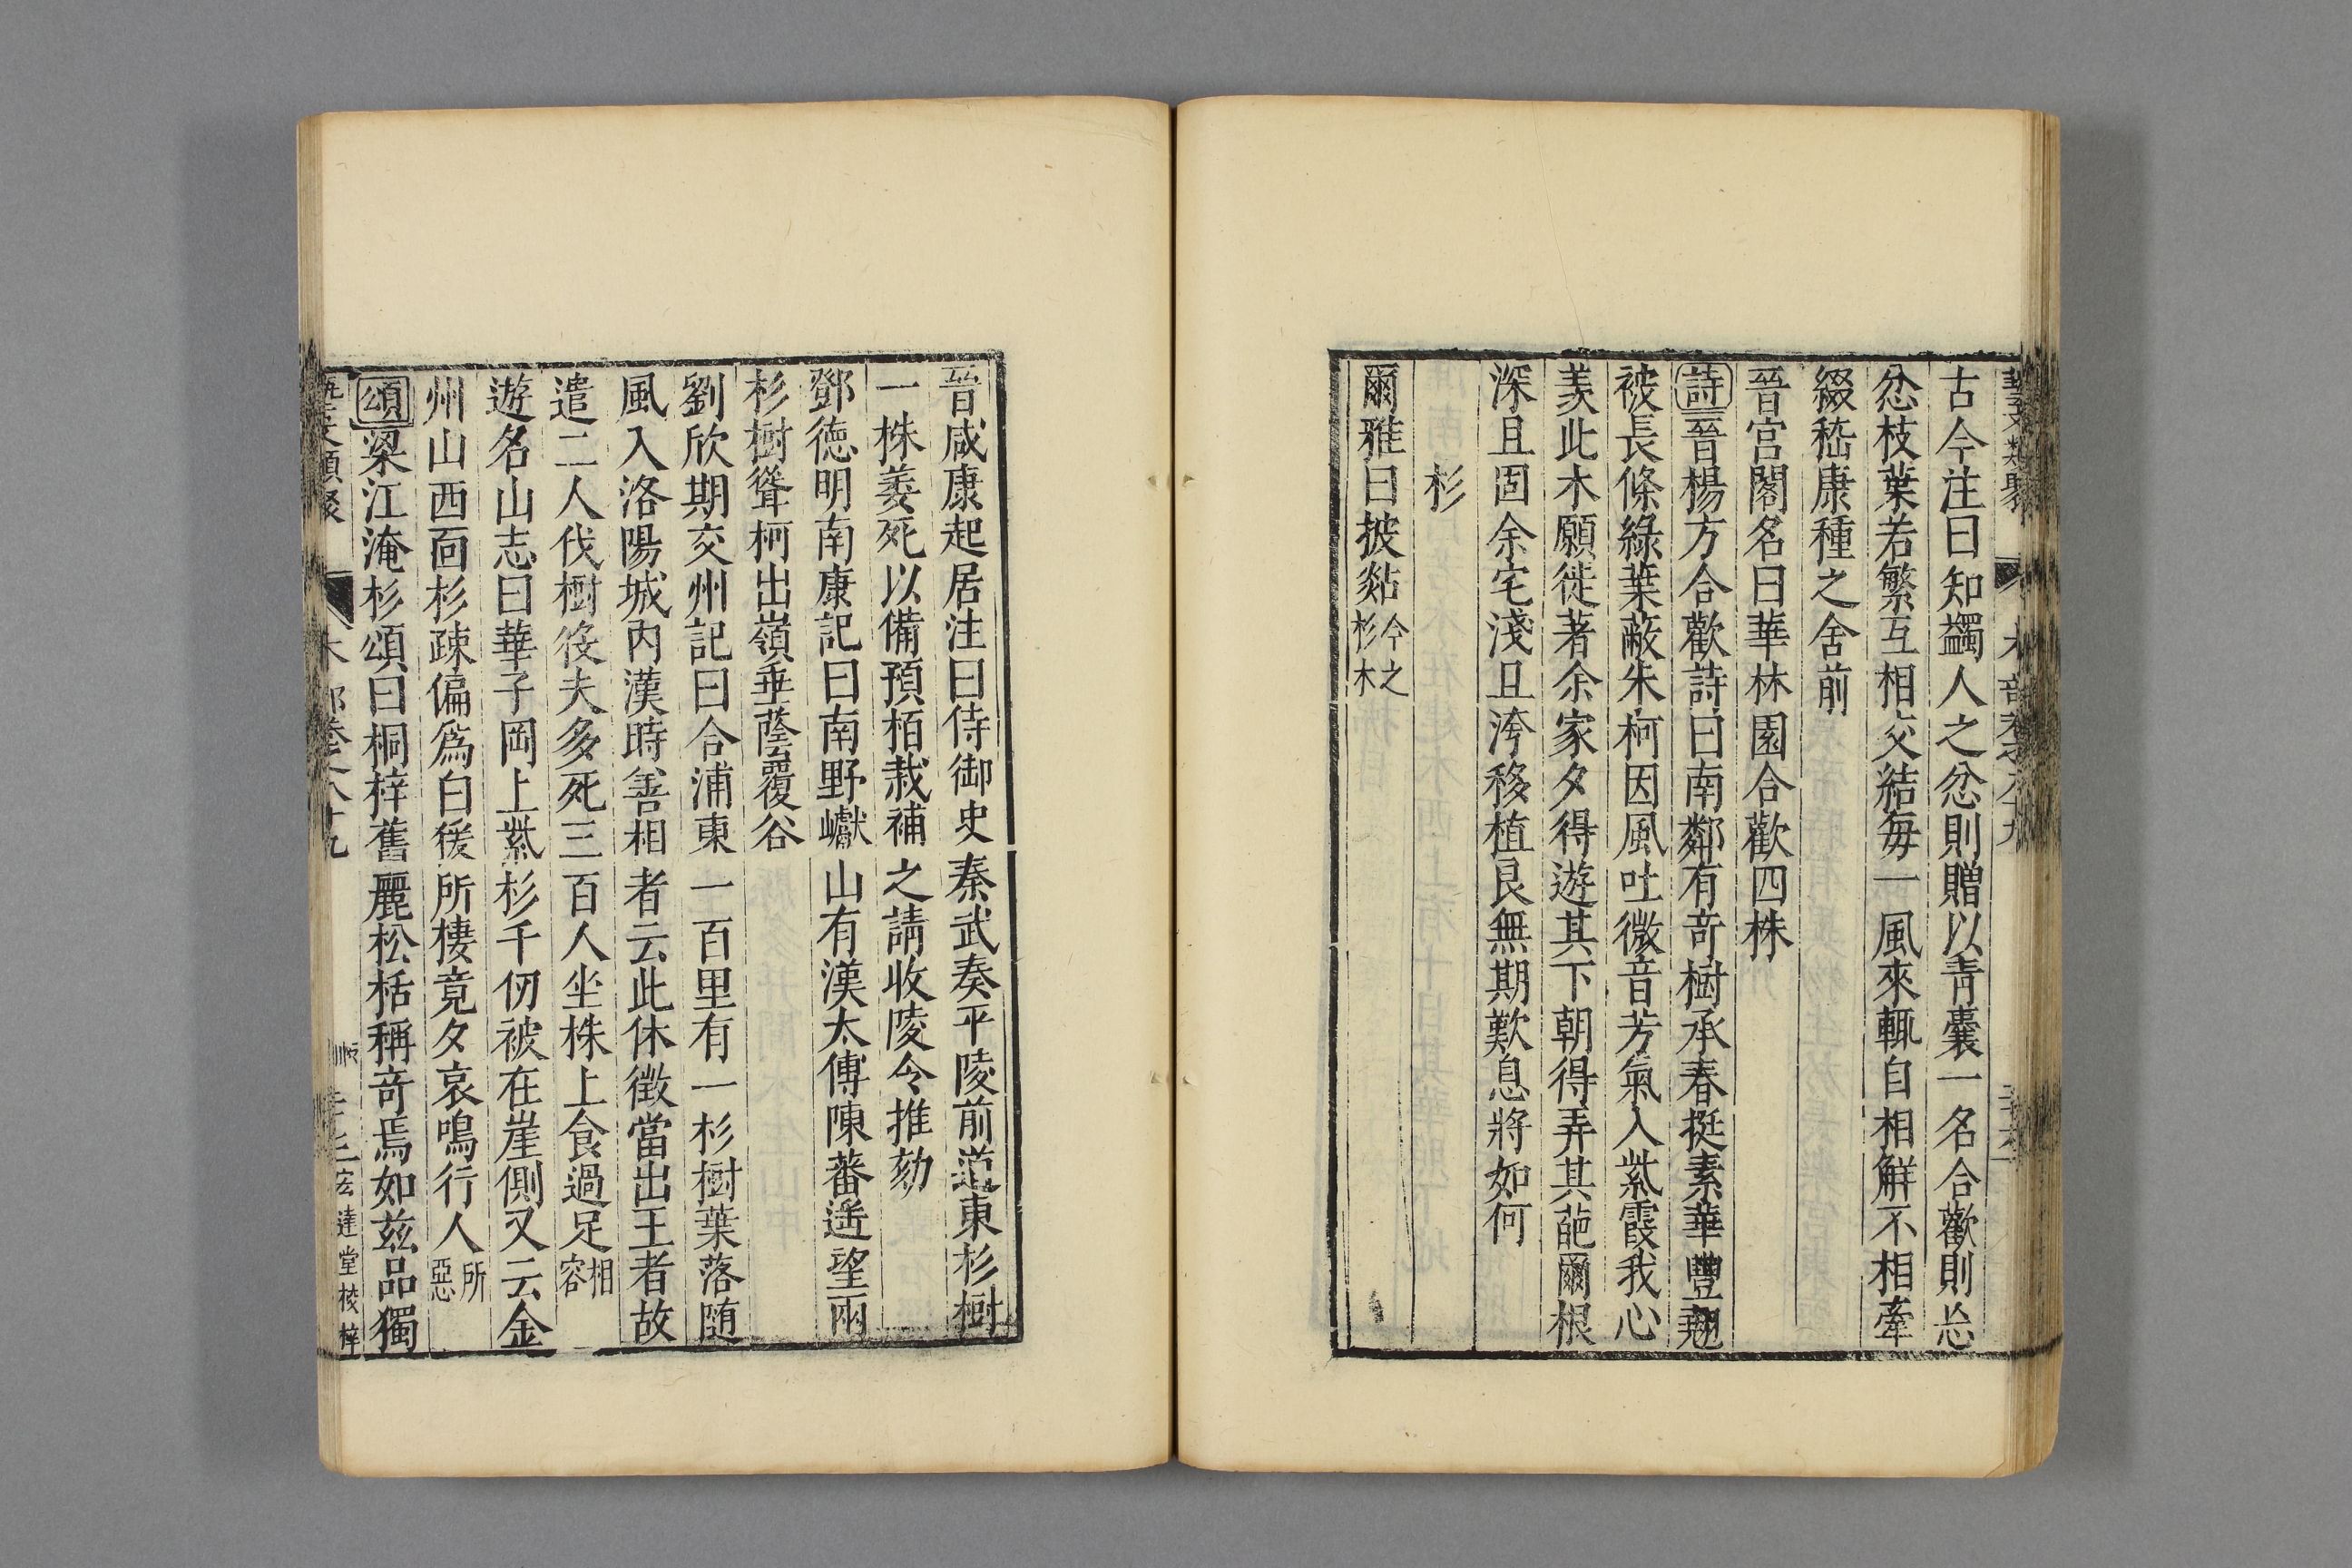 藝文類聚 木部卷之八十九
古今注曰知蠲人之忿則贈以青囊一名合歡則忘
忿枝葉若繁互相交結每一風來輒自相解不相牽
綴嵇康種之舍前
晉宮閣名曰華林園合歡四株
詩晉楊方合歡詩曰南鄰有奇樹承春挺素華豐翹
被長條綠葉蔽朱柯因風吐微音芳氣入紫霞我心
羨此木願徙著余家夕得遊其下朝得弄其葩爾根
深且固余宅淺且洿移植良無期歎息將如何
杉
爾雅曰披㸃今之杉木
晉咸康起居注曰侍御史秦武奏平陵前道東杉樹
一株萎死以備預栢栽補之請收陵令推劾
鄧德明南康記曰南野巘山有漢太傅陳蕃遙望兩
杉樹聳柯出嶺垂蔭覆谷
劉欣期交州記曰合浦東一百里有一杉樹葉落随
風入洛陽城內漢時善相者云此休徵當出王者故
遣二人伐樹役夫多死三百人坐株上食過足相容
遊名山志曰華子岡上紫杉千仞被在崖側又云金
州山西面杉疎偏爲白猨所棲竟夕哀鳴行人所惡
頌梁江淹杉頌曰桐梓舊麗松栝稱奇焉如兹品獨
藝文類聚 木部卷之八十九 宏達堂校梓